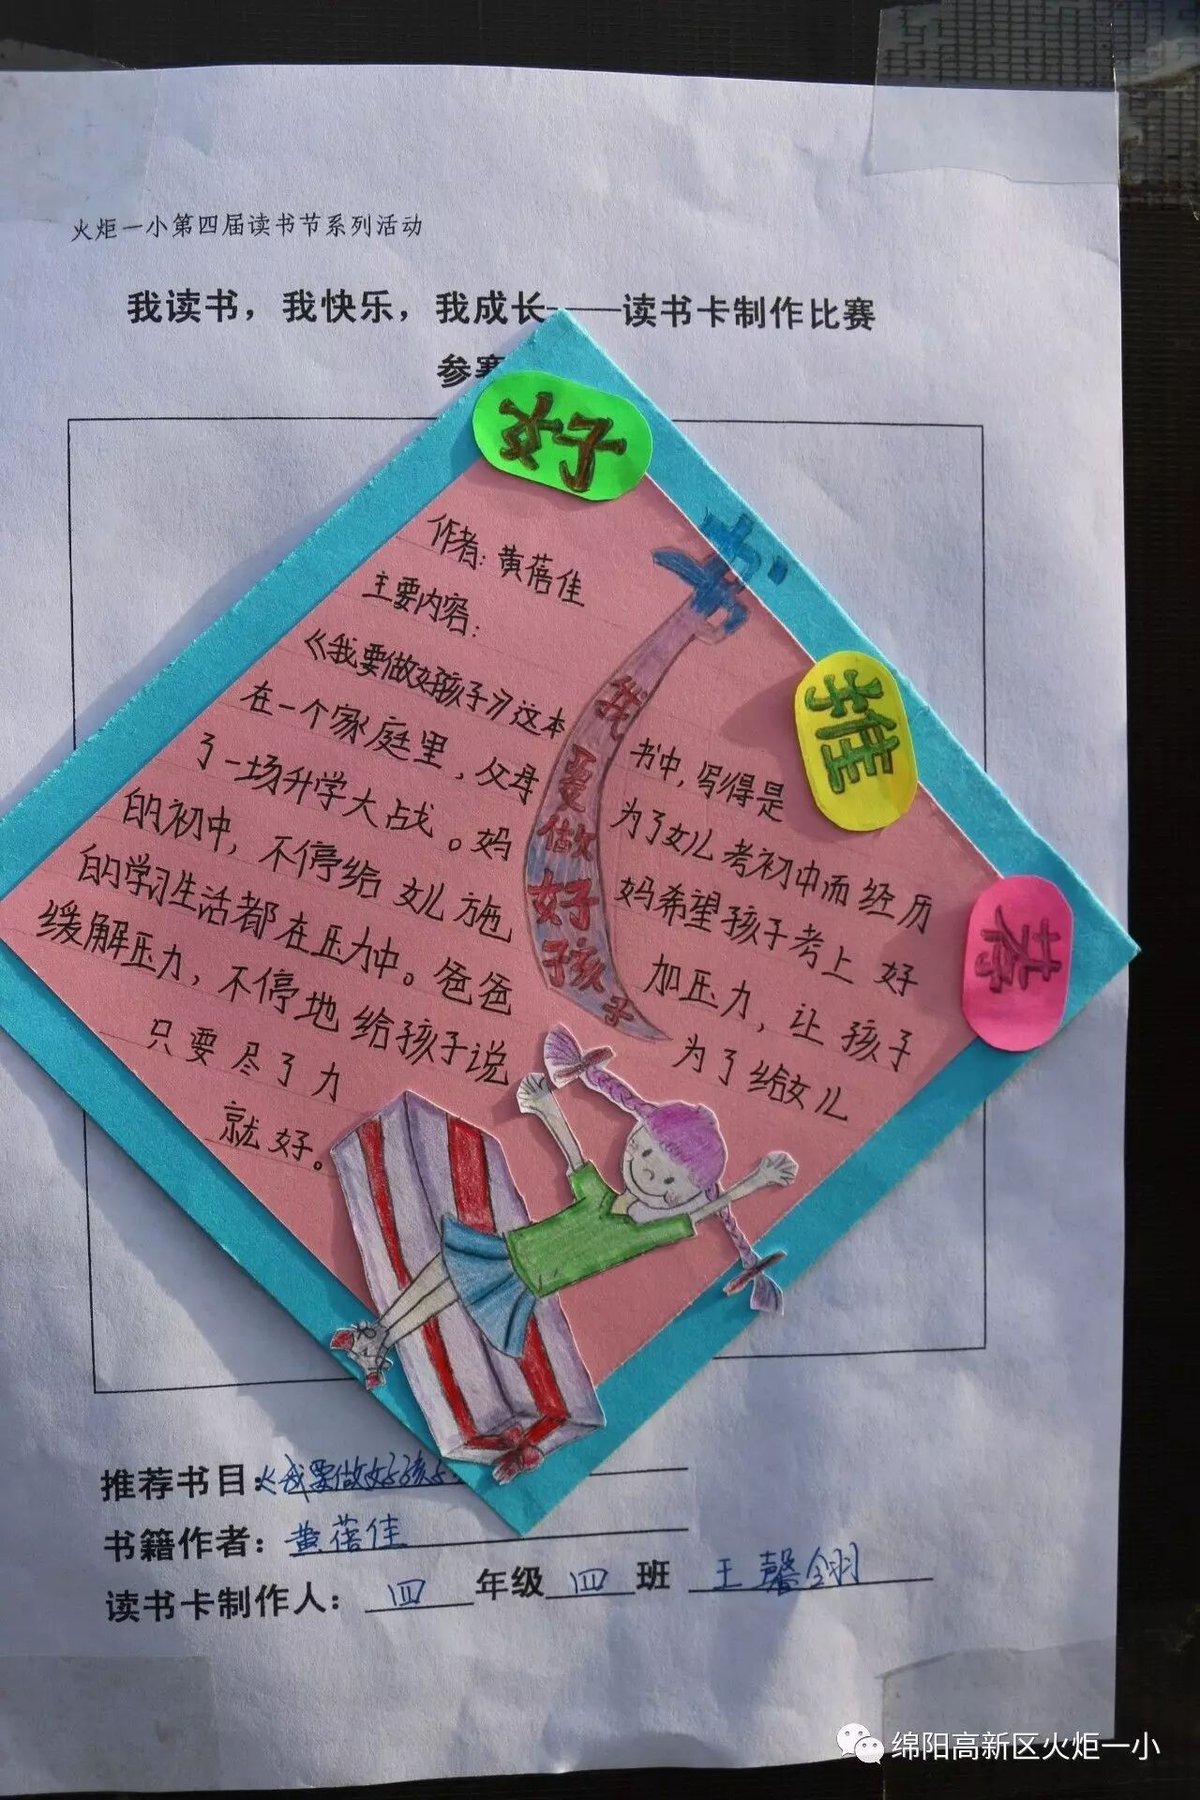 火炬一小第四届读书节系列活动
我读书，我快乐，我成长——读书卡制作比赛
参赛
好
书
推
荐
作者：黄蓓佳
主要内容：
《我要做好孩子》这本书中，写得是
在一个家庭里，父母为了女儿考初中而经历
了一场升学大战。妈妈希望孩子考上好
的初中，不停给女儿施加压力，让孩子
的学习生活都在压力中。爸爸为了给女儿
缓解压力，不停地给孩子说
只要尽了力
就好。
我要做好孩子
推荐书目：《我要做好孩子
书籍作者：黄蓓佳
读书卡制作人：四年级四班 王馨翎
绵阳高新区火炬一小